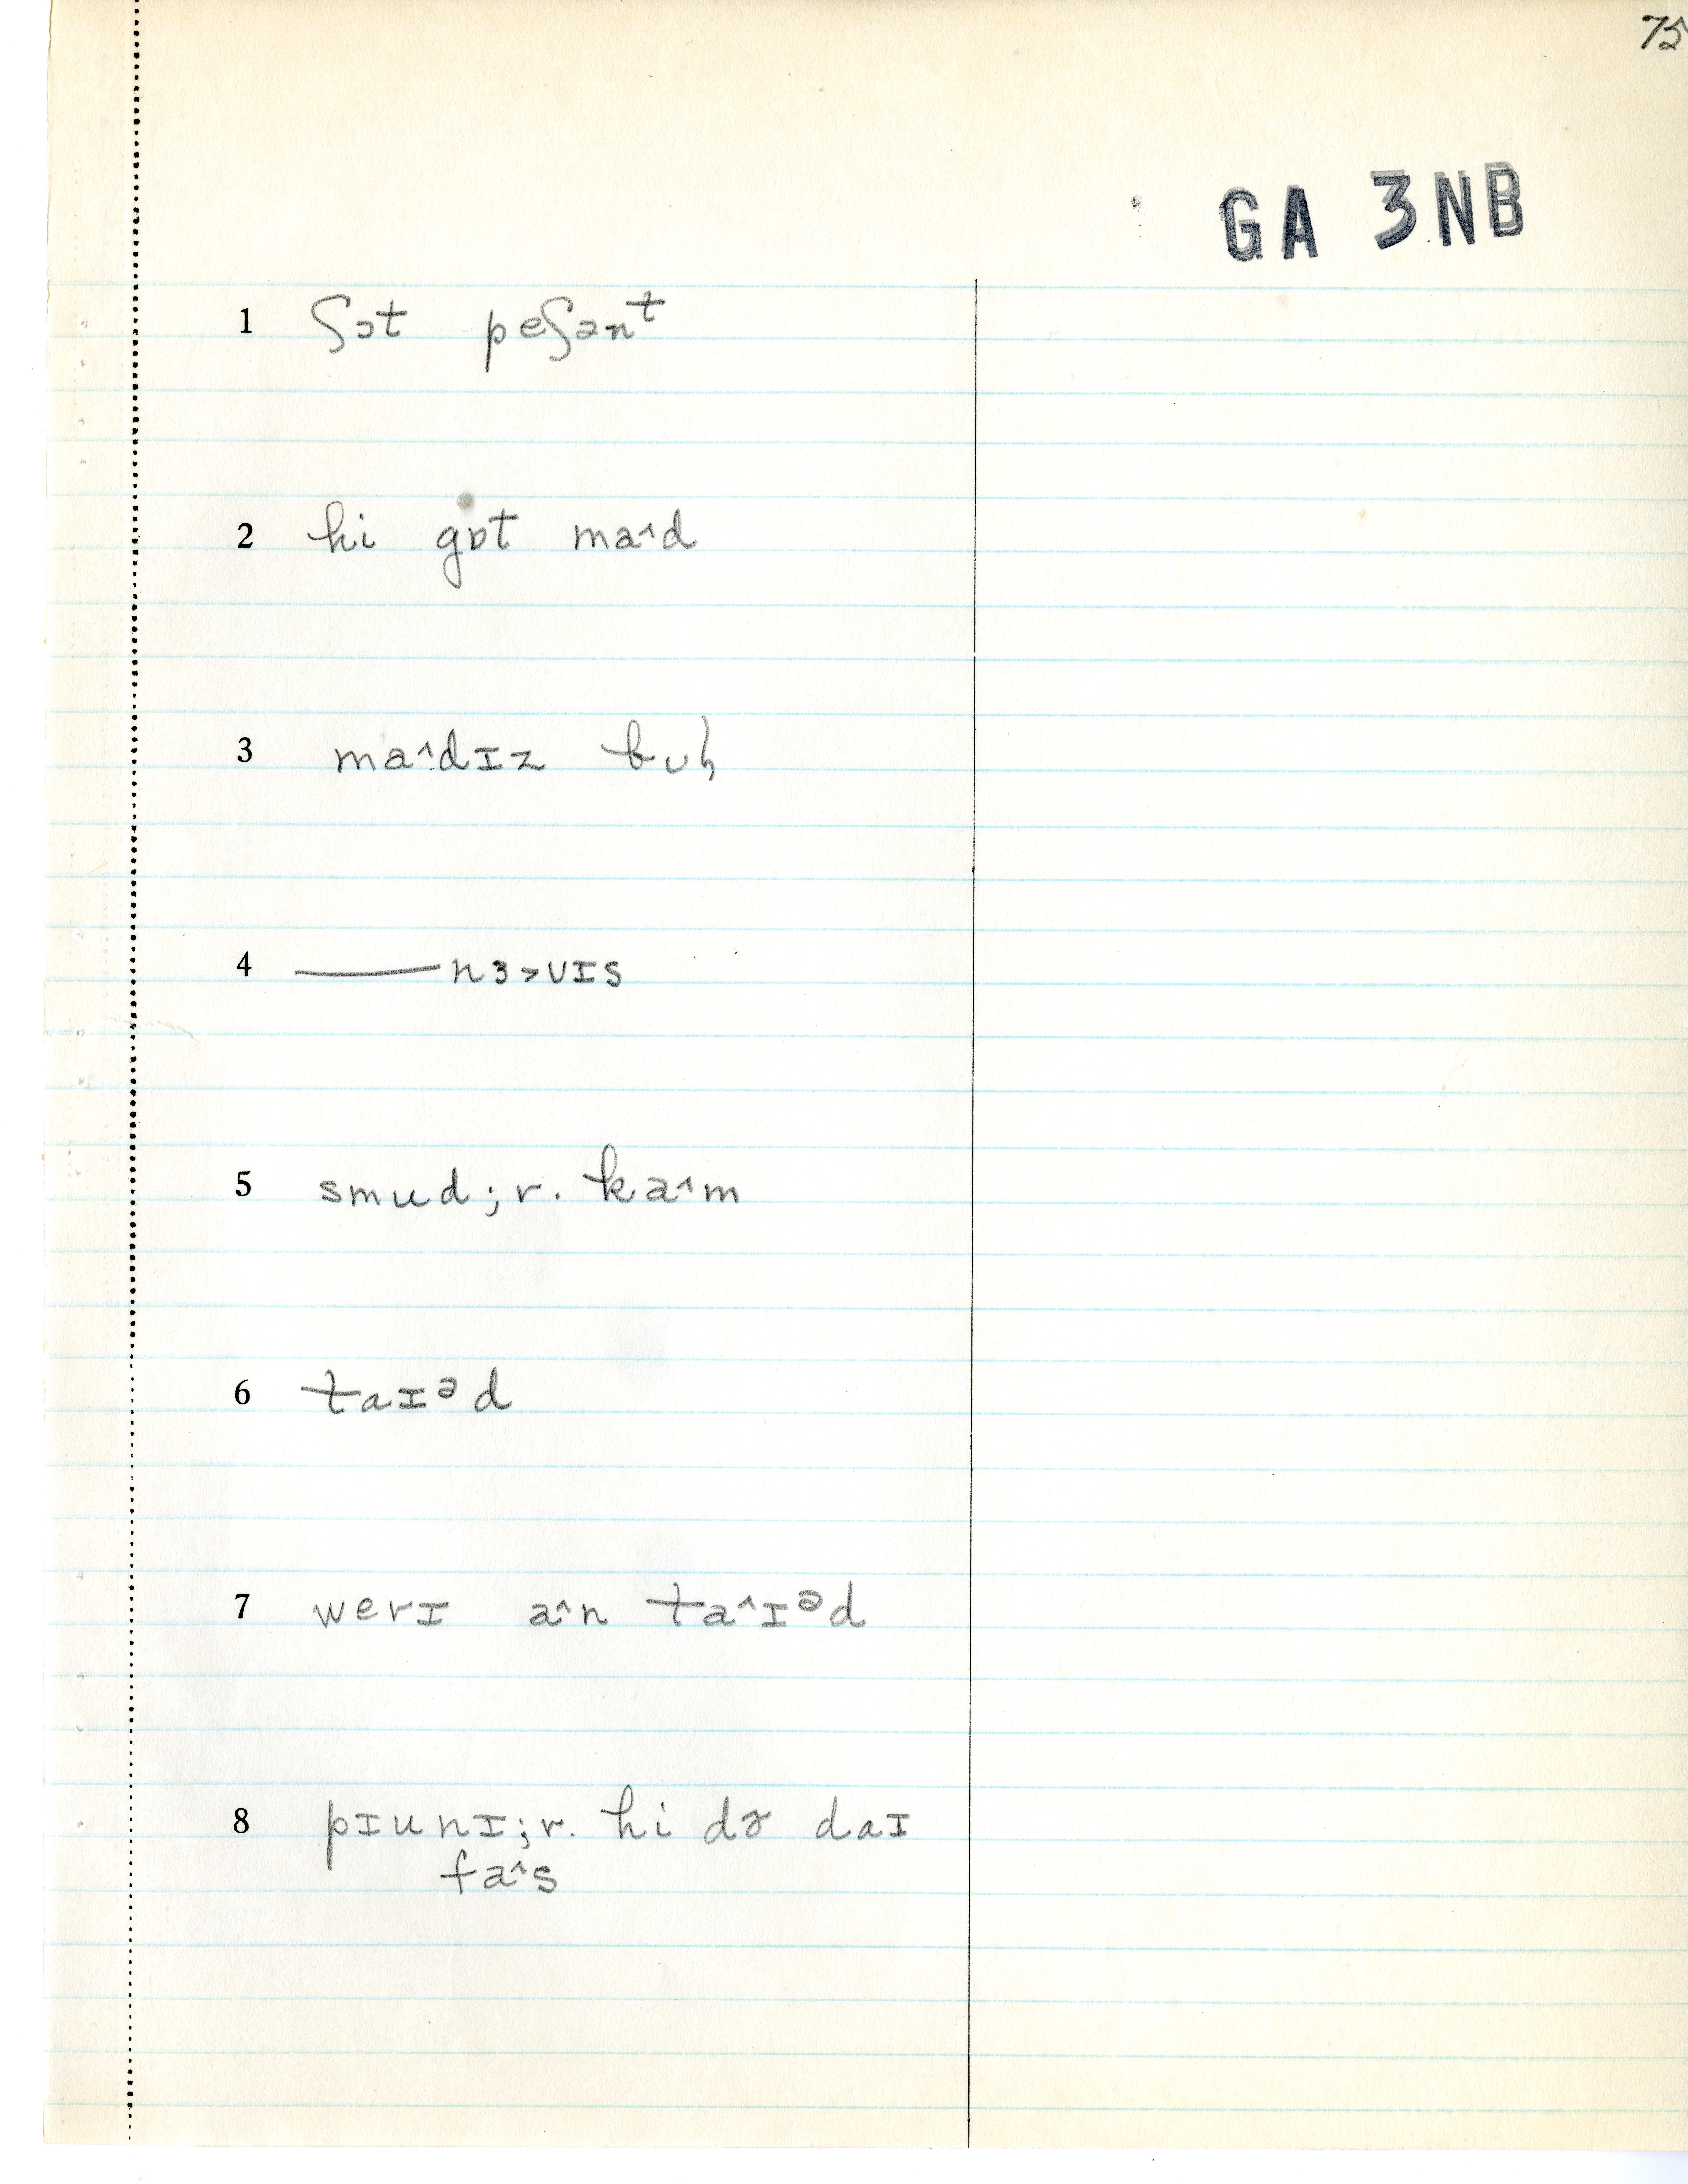 75
GA 3NB
1 ʃɔt peʃənᵗ
2 hi gɒt ma˄d
3 ma˄dɪz bʊʃ
4 ——— nɜ˃vɪs
5 smud ; r. ka˄m
6 taɪᵊd
7 werɪ a˄n ta˄ɪᵊd
8 pɪunɪ ; r. hi dɚ daɪ
fa˄s